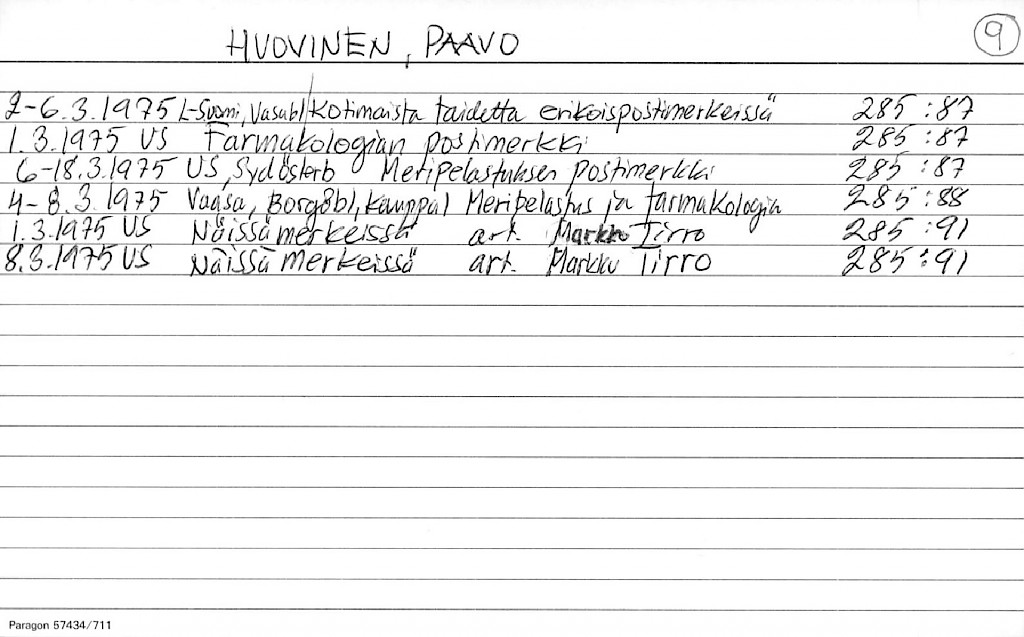 HUOVINEN, PAAVO
9
2-6.3.1975 L-Suomi, Vasabl/Kotimaista taidetta erikoispostimerkeissä 285:87
1.3.1975 US Farmakologian postimerkki 285:87
6-18.3.1975 US, Sydösterb Meripelastuksen postimerkki 285:87
4-8.3.1975 Vaasa, Borgåbl, Kauppal Meripelastus ja farmakologia 285:88
1.3.1975 US Näissä merkeissä art. Markku Tirro 285:91
8.3.1975 US Näissä merkeissä art. Markku Tirro 285:91
Paragon 57434/711